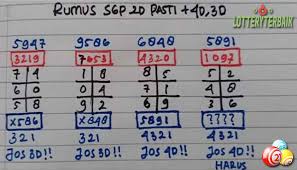 RUMUS SGP 2D PASTI +4D,3D
LOTTERYTERBAIK
5947 9586 6848 5891
3219 7053 4320 1097
7 4 1 8 8 5 5 2
6 0 0 4 7 1 4 8
5 8 9 2 6 9 3 6
X586 X848 5891 ????
321 321 4321 4321
JOS 3D!! JOS 3D!! JOS 4D!! JOS 4D!!
HARUS